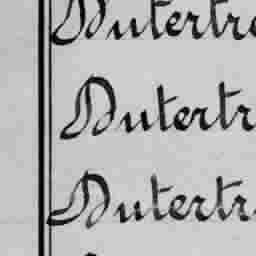 Dutertre
Dutertr
Dutertr